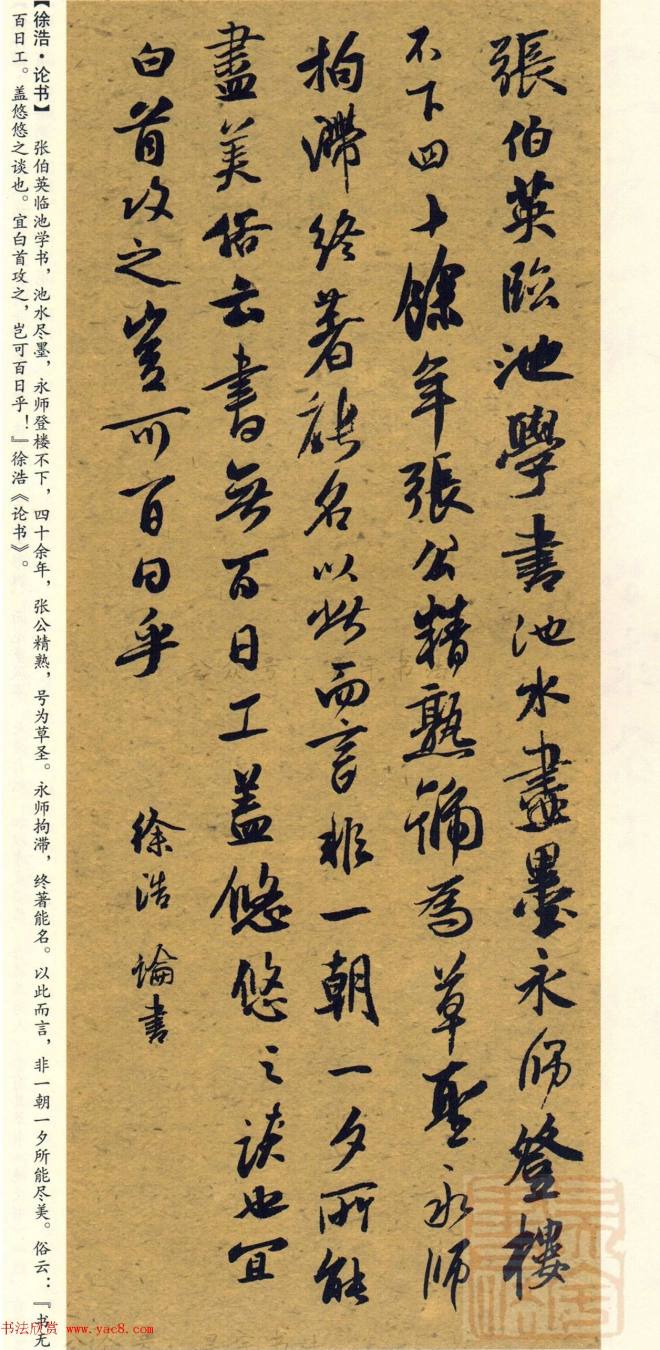 張伯英臨池學書池水盡墨永師登樓
不下四十餘年張公精熟号為草聖永師
拘滯終著能名以此而言非一朝一夕所能
盡美俗云書無百日工蓋悠悠之談也宜
白首攻之豈可百日乎
徐浩論書
【徐浩·论书】 张伯英临池学书，池水尽墨，永师登楼不下，四十余年，张公精熟，号为草圣。永师拘滞，终著能名。以此而言，非一朝一夕所能尽美。俗云：『书无
百日工。盖悠悠之谈也。宜白首攻之，岂可百日乎！』徐浩《论书》。
书法欣赏 www.yac8.com